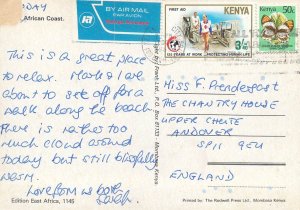 DAY
African Coast.
BY AIR MAIL
PAR AVION
FIRST AID
KENYA
3/-
125 YEARS AT WORK PROTECTING HUMAN LIFE
KENYA
50c
This is a great place
to relax. Mark & I are
about to set off for a
walk along the beach.
There is rather too
much cloud around
today but still blissfully
warm.
Love from us both
Sarah
Miss F. Prendergast
THE CHANTRY HOUSE
UPPER CHUTE
ANDOVER
SP11 9EU
ENGLAND
Edition East Africa, 1145
Printed by The Rodwell Press Ltd., Mombasa Kenya